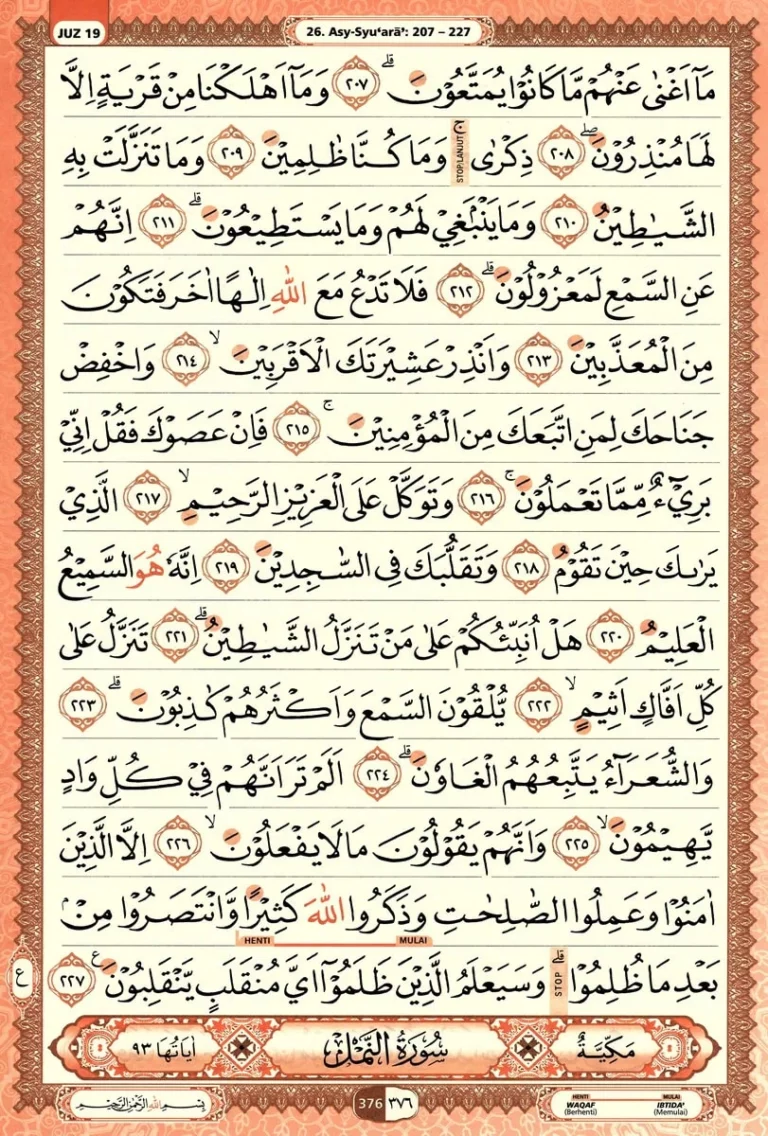 JUZ 19
26. Asy-Syu‘arā’: 207 – 227
مَآ اَغْنٰى عَنْهُمْ مَّا كَانُوْا يُمَتَّعُوْنَ ۗ ٢٠٧ وَمَآ اَهْلَكْنَا مِنْ قَرْيَةٍ اِلَّا
لَهَا مُنْذِرُوْنَ ۖ ٢٠٨ ذِكْرٰى ۚ STOP/LANJUT وَمَا كُنَّا ظٰلِمِيْنَ ٢٠٩ وَمَا تَنَزَّلَتْ بِهِ
الشَّيٰطِيْنُ ٢١٠ وَمَا يَنْۢبَغِيْ لَهُمْ وَمَا يَسْتَطِيْعُوْنَ ۗ ٢١١ اِنَّهُمْ
عَنِ السَّمْعِ لَمَعْزُوْلُوْنَ ۗ ٢١٢ فَلَا تَدْعُ مَعَ اللّٰهِ اِلٰهًا اٰخَرَ فَتَكُوْنَ
مِنَ الْمُعَذَّبِيْنَ ٢١٣ وَاَنْذِرْ عَشِيْرَتَكَ الْاَقْرَبِيْنَ ۙ ٢١٤ وَاخْفِضْ
جَنَاحَكَ لِمَنِ اتَّبَعَكَ مِنَ الْمُؤْمِنِيْنَ ۚ ٢١٥ فَاِنْ عَصَوْكَ فَقُلْ اِنِّيْ
بَرِيْۤءٌ مِّمَّا تَعْمَلُوْنَ ۚ ٢١٦ وَتَوَكَّلْ عَلَى الْعَزِيْزِ الرَّحِيْمِ ۙ ٢١٧ الَّذِيْ
يَرٰىكَ حِيْنَ تَقُوْمُ ٢١٨ وَتَقَلُّبَكَ فِى السّٰجِدِيْنَ ٢١٩ اِنَّهٗ هُوَ السَّمِيْعُ
الْعَلِيْمُ ٢٢٠ هَلْ اُنَبِّئُكُمْ عَلٰى مَنْ تَنَزَّلُ الشَّيٰطِيْنُ ۗ ٢٢١ تَنَزَّلُ عَلٰى
كُلِّ اَفَّاكٍ اَثِيْمٍ ۙ ٢٢٢ يُّلْقُوْنَ السَّمْعَ وَاَكْثَرُهُمْ كٰذِبُوْنَ ۗ ٢٢٣
وَالشُّعَرَاۤءُ يَتَّبِعُهُمُ الْغَاوٗنَ ۗ ٢٢٤ اَلَمْ تَرَ اَنَّهُمْ فِيْ كُلِّ وَادٍ
يَّهِيْمُوْنَ ۙ ٢٢٥ وَاَنَّهُمْ يَقُوْلُوْنَ مَا لَا يَفْعَلُوْنَ ۙ ٢٢٦ اِلَّا الَّذِيْنَ
اٰمَنُوْا وَعَمِلُوا الصّٰلِحٰتِ وَذَكَرُوا اللّٰهَ كَثِيْرًا وَّانْتَصَرُوْا مِنْۢ
HENTI MULAI
بَعْدِ مَا ظُلِمُوْا ۗ STOP وَسَيَعْلَمُ الَّذِيْنَ ظَلَمُوْٓا اَيَّ مُنْقَلَبٍ يَّنْقَلِبُوْنَ ࣖ ٢٢٧
ع
مَكِّيَّةٌ سُوْرَةُ النَّمْلِ اٰيَاتُهَا ٩٣
بِسْمِ اللّٰهِ الرَّحْمٰنِ الرَّحِيْمِ
376 ٣٧٦
HENTI MULAI
WAQAF IBTIDA'
(Berhenti) (Memulai)